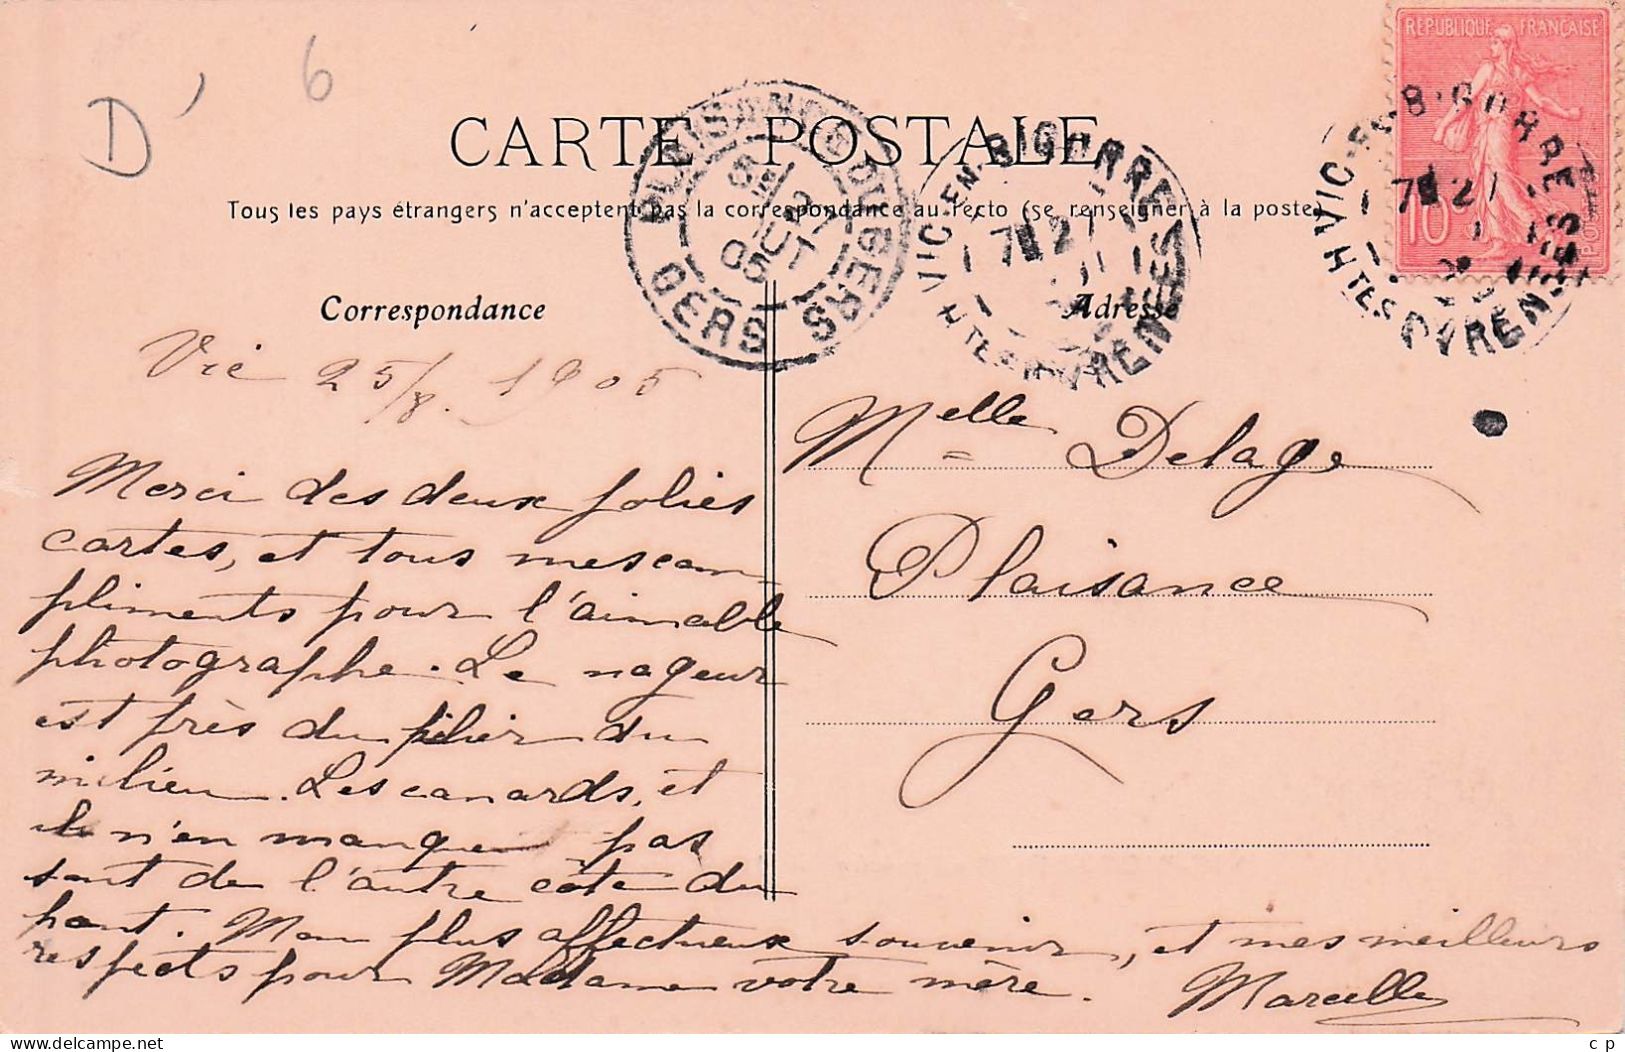 D' 6
REPUBLIQUE FRANÇAISE
10c
POSTES
CARTE POSTALE
Tous les pays étrangers n'acceptent pas la correspondance au recto (se renseigner à la poste)
PLAISANCE DU GERS
27
05
GERS
VIC-EN-BIGORRE
7 27
HTES PYRENEES
VIC-EN-BIGORRE
7 27
HTES PYRENEES
Correspondance
Adresse
Vic 25/8. 1905
Merci des deux jolies
cartes, et tous mes com
pliments pour l'aimable
photographe. Le nageur
est près du pilier du
milieu. Les canards, et
ils n'en manquent pas
sont de l'autre côté du
pont. Mon plus affectueux souvenir, et mes meilleurs
respects pour Madame votre mère. Marcelle
Melle Delage
Plaisance
Gers
c p